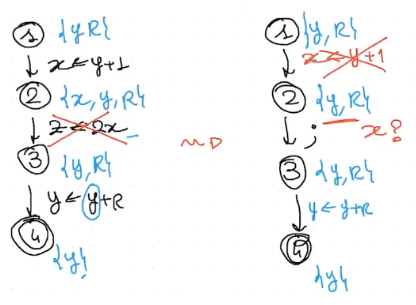 1 {y,R}
x ← y+1
2 {x, y, R}
z ← 2x
3 {y, R}
y ← y+R
4
{y}
~~▷
1 {y, R}
x ← y+1
2 {y, R}
; x?
3 {y, R}
y ← y+R
4
{y}